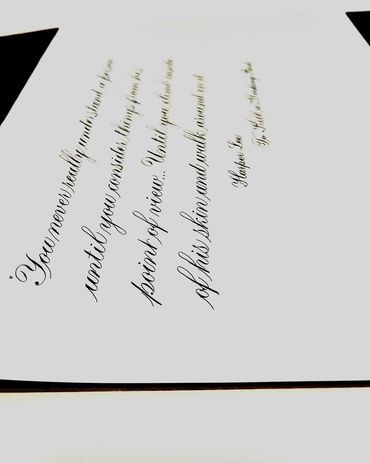 "You never really understand a person
until you consider things from his
point of view... Until you climb inside
of his skin and walk around in it
Harper Lee
To Kill a Mocking Bird